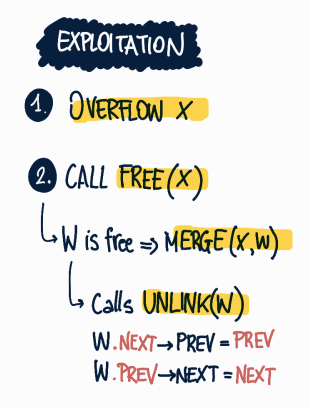 EXPLOITATION
1. OVERFLOW X
2. CALL FREE(X)
W is free => MERGE(X,W)
Calls UNLINK(W)
W.NEXT→PREV = PREV
W.PREV→NEXT = NEXT